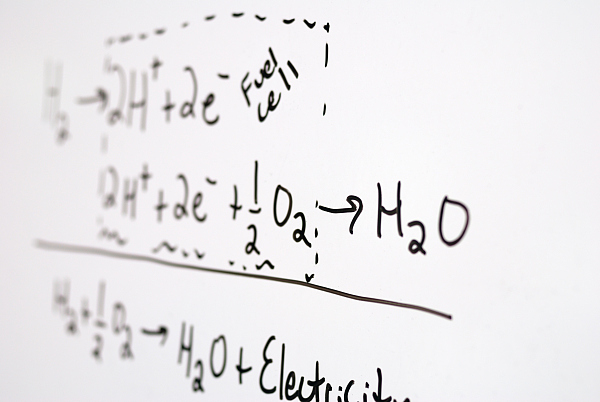 H₂ → 2H⁺ + 2e⁻ Fuel cell
2H⁺ + 2e⁻ + ½ O₂ → H₂O
H₂ + ½ O₂ → H₂O + Electricity